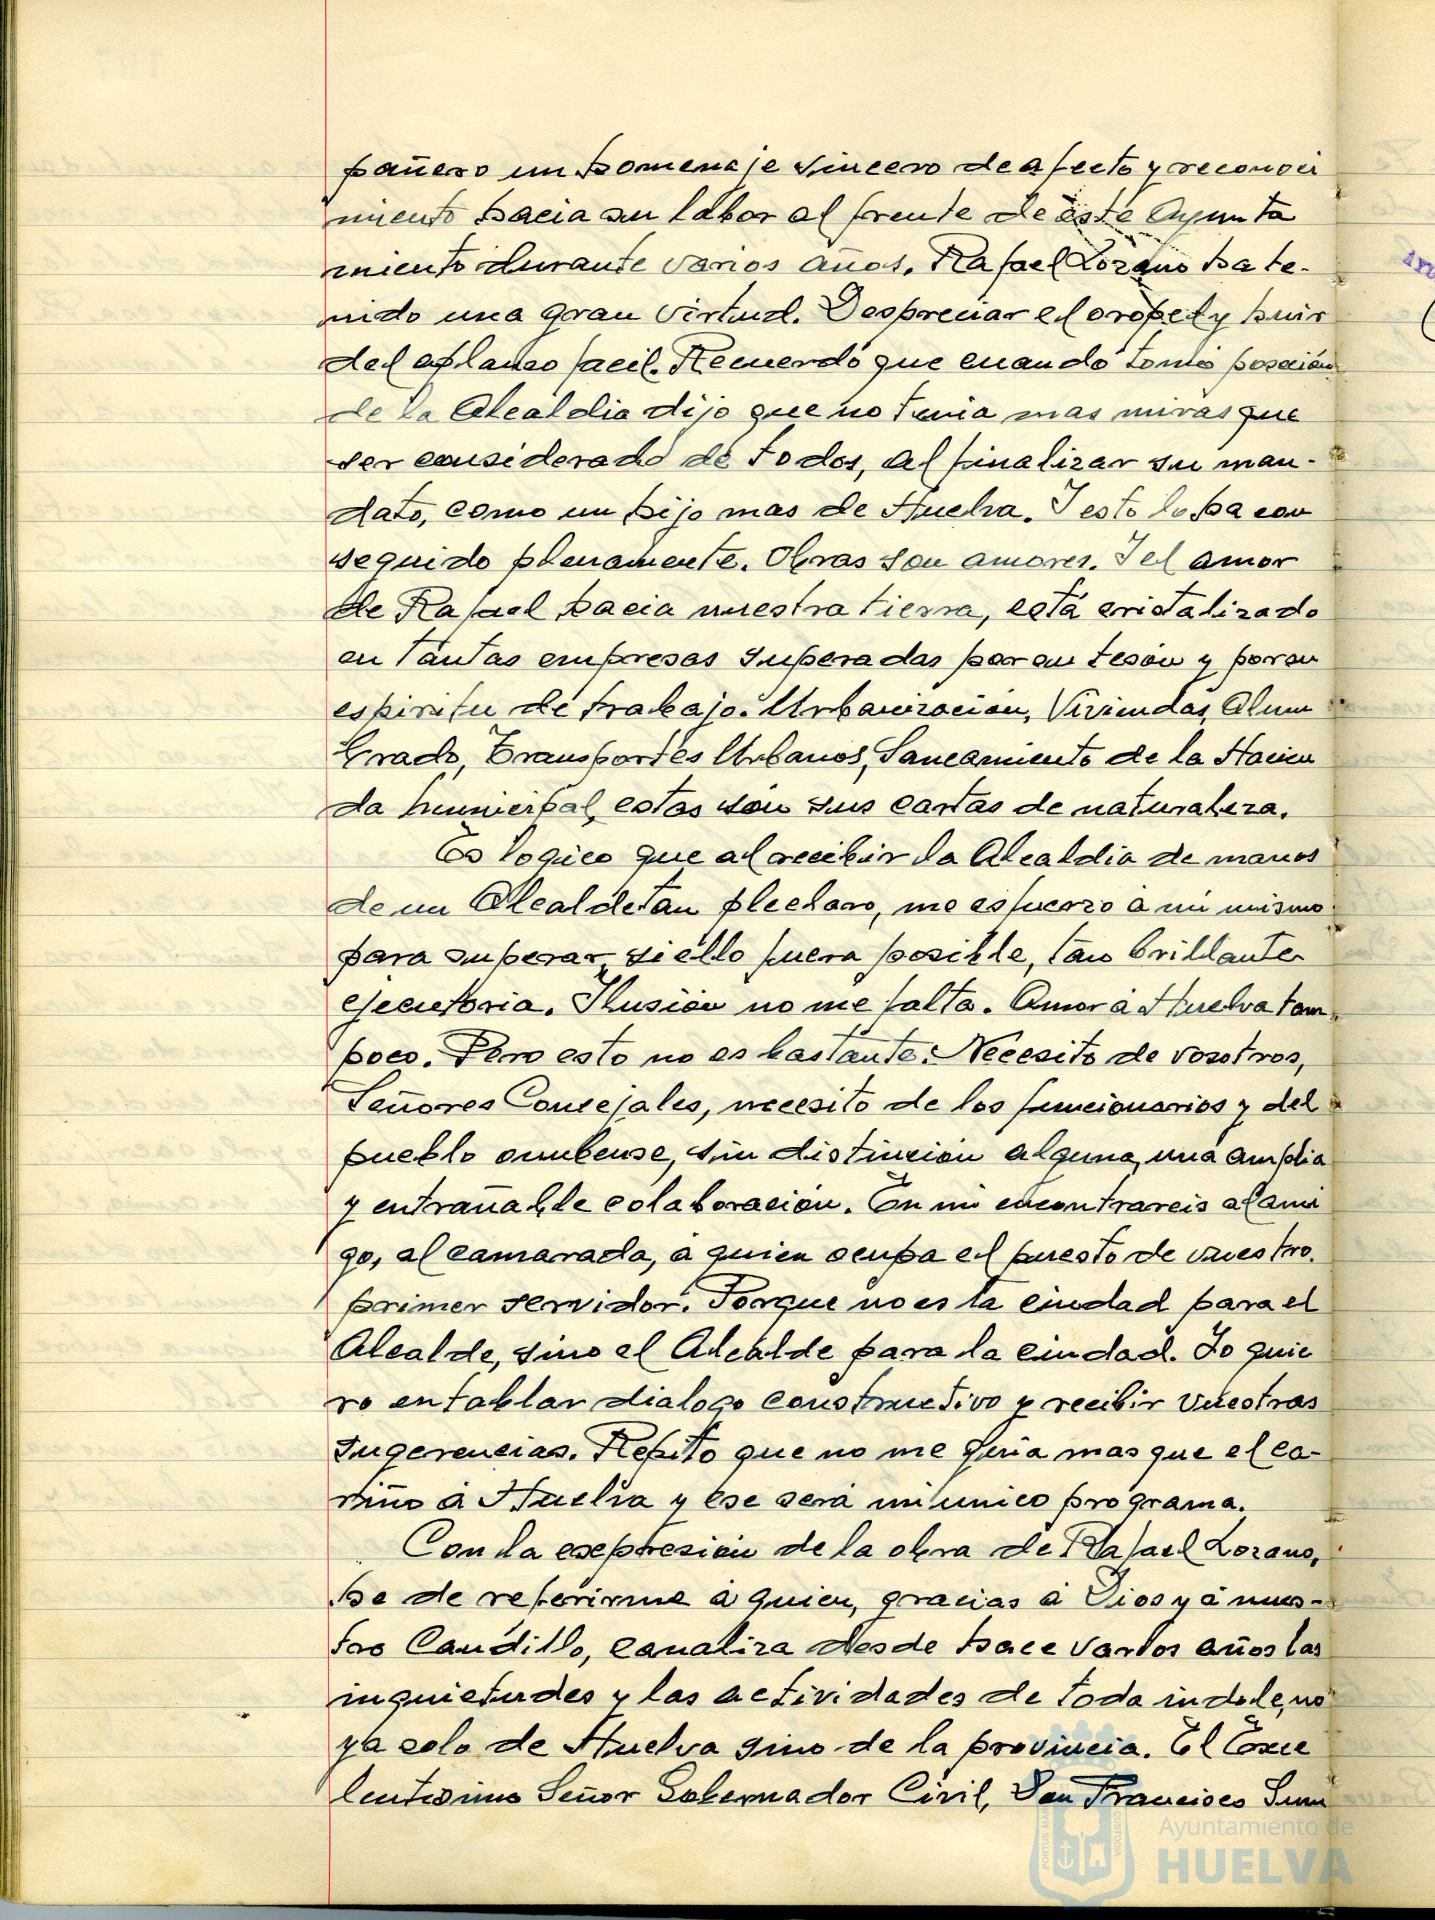 pañero un homenaje sincero de afecto y reconoci
miento hacia su labor al frente de este Ayunta
miento durante varios años. Rafael Lozano ha te-
nido una gran virtud. Despreciar el oropel y huir
del aplauso facil. Recuerdo que cuando tomó posesión
de la Alcaldia dijo que no tenia mas miras que
ser considerado de todos, al finalizar su man-
dato, como un hijo mas de Huelva. Y esto lo ha con
seguido plenamente. Obras son amores. Y el amor
de Rafael hacia nuestra tierra, está cristalizado
en tantas empresas superadas por su tesón y por su
espiritu de trabajo. Urbanización, Viviendas, Alum
brado, Transportes Urbanos, Saneamiento de la Hacien
da Municipal, estas son sus cartas de naturaleza.
Es logico que al recibir la Alcaldia de manos
de un Alcalde tan preclaro, me esfuerzo á mi mismo
para superar, si ello fuera posible, tan brillante
ejecutoria. Ilusión no me falta. Amor á Huelva tam
poco. Pero esto no es bastante. Necesito de vosotros,
Señores Concejales, necesito de los funcionarios y del
pueblo onubense, sin distinción alguna, una amplia
y entrañable colaboración. En mi encontrareis al ami
go, al camarada, a quien ocupa el puesto de vuestro
primer servidor. Porque no es la ciudad para el
Alcalde, sino el Alcalde para la ciudad. Yo quie
ro entablar dialogo constructivo y recibir vuestras
sugerencias. Repito que no me guia mas que el ca-
riño á Huelva y ese será mi unico programa.
Con la expresión de la obra de Rafael Lozano,
he de referirme á quien, gracias á Dios y á nues-
tro Caudillo, canaliza desde hace varios años las
inquietudes y las actividades de toda indole, no
ya solo de Huelva sino de la provincia. El Exce
lentisimo Señor Gobernador Civil, Don Francisco Summ
Ayuntamiento de
HUELVA